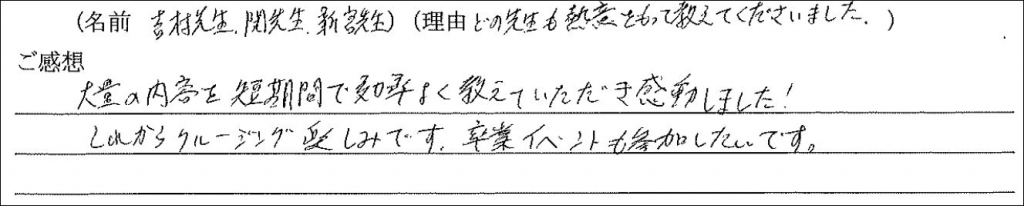 (名前 吉村先生、関先生、新宮先生) (理由 どの先生も熱意をもって教えてくださいました。)
ご感想
大量の内容を短期間で効率よく教えていただき感動しました!
これからクルージング楽しみです。卒業イベントも参加したいです。